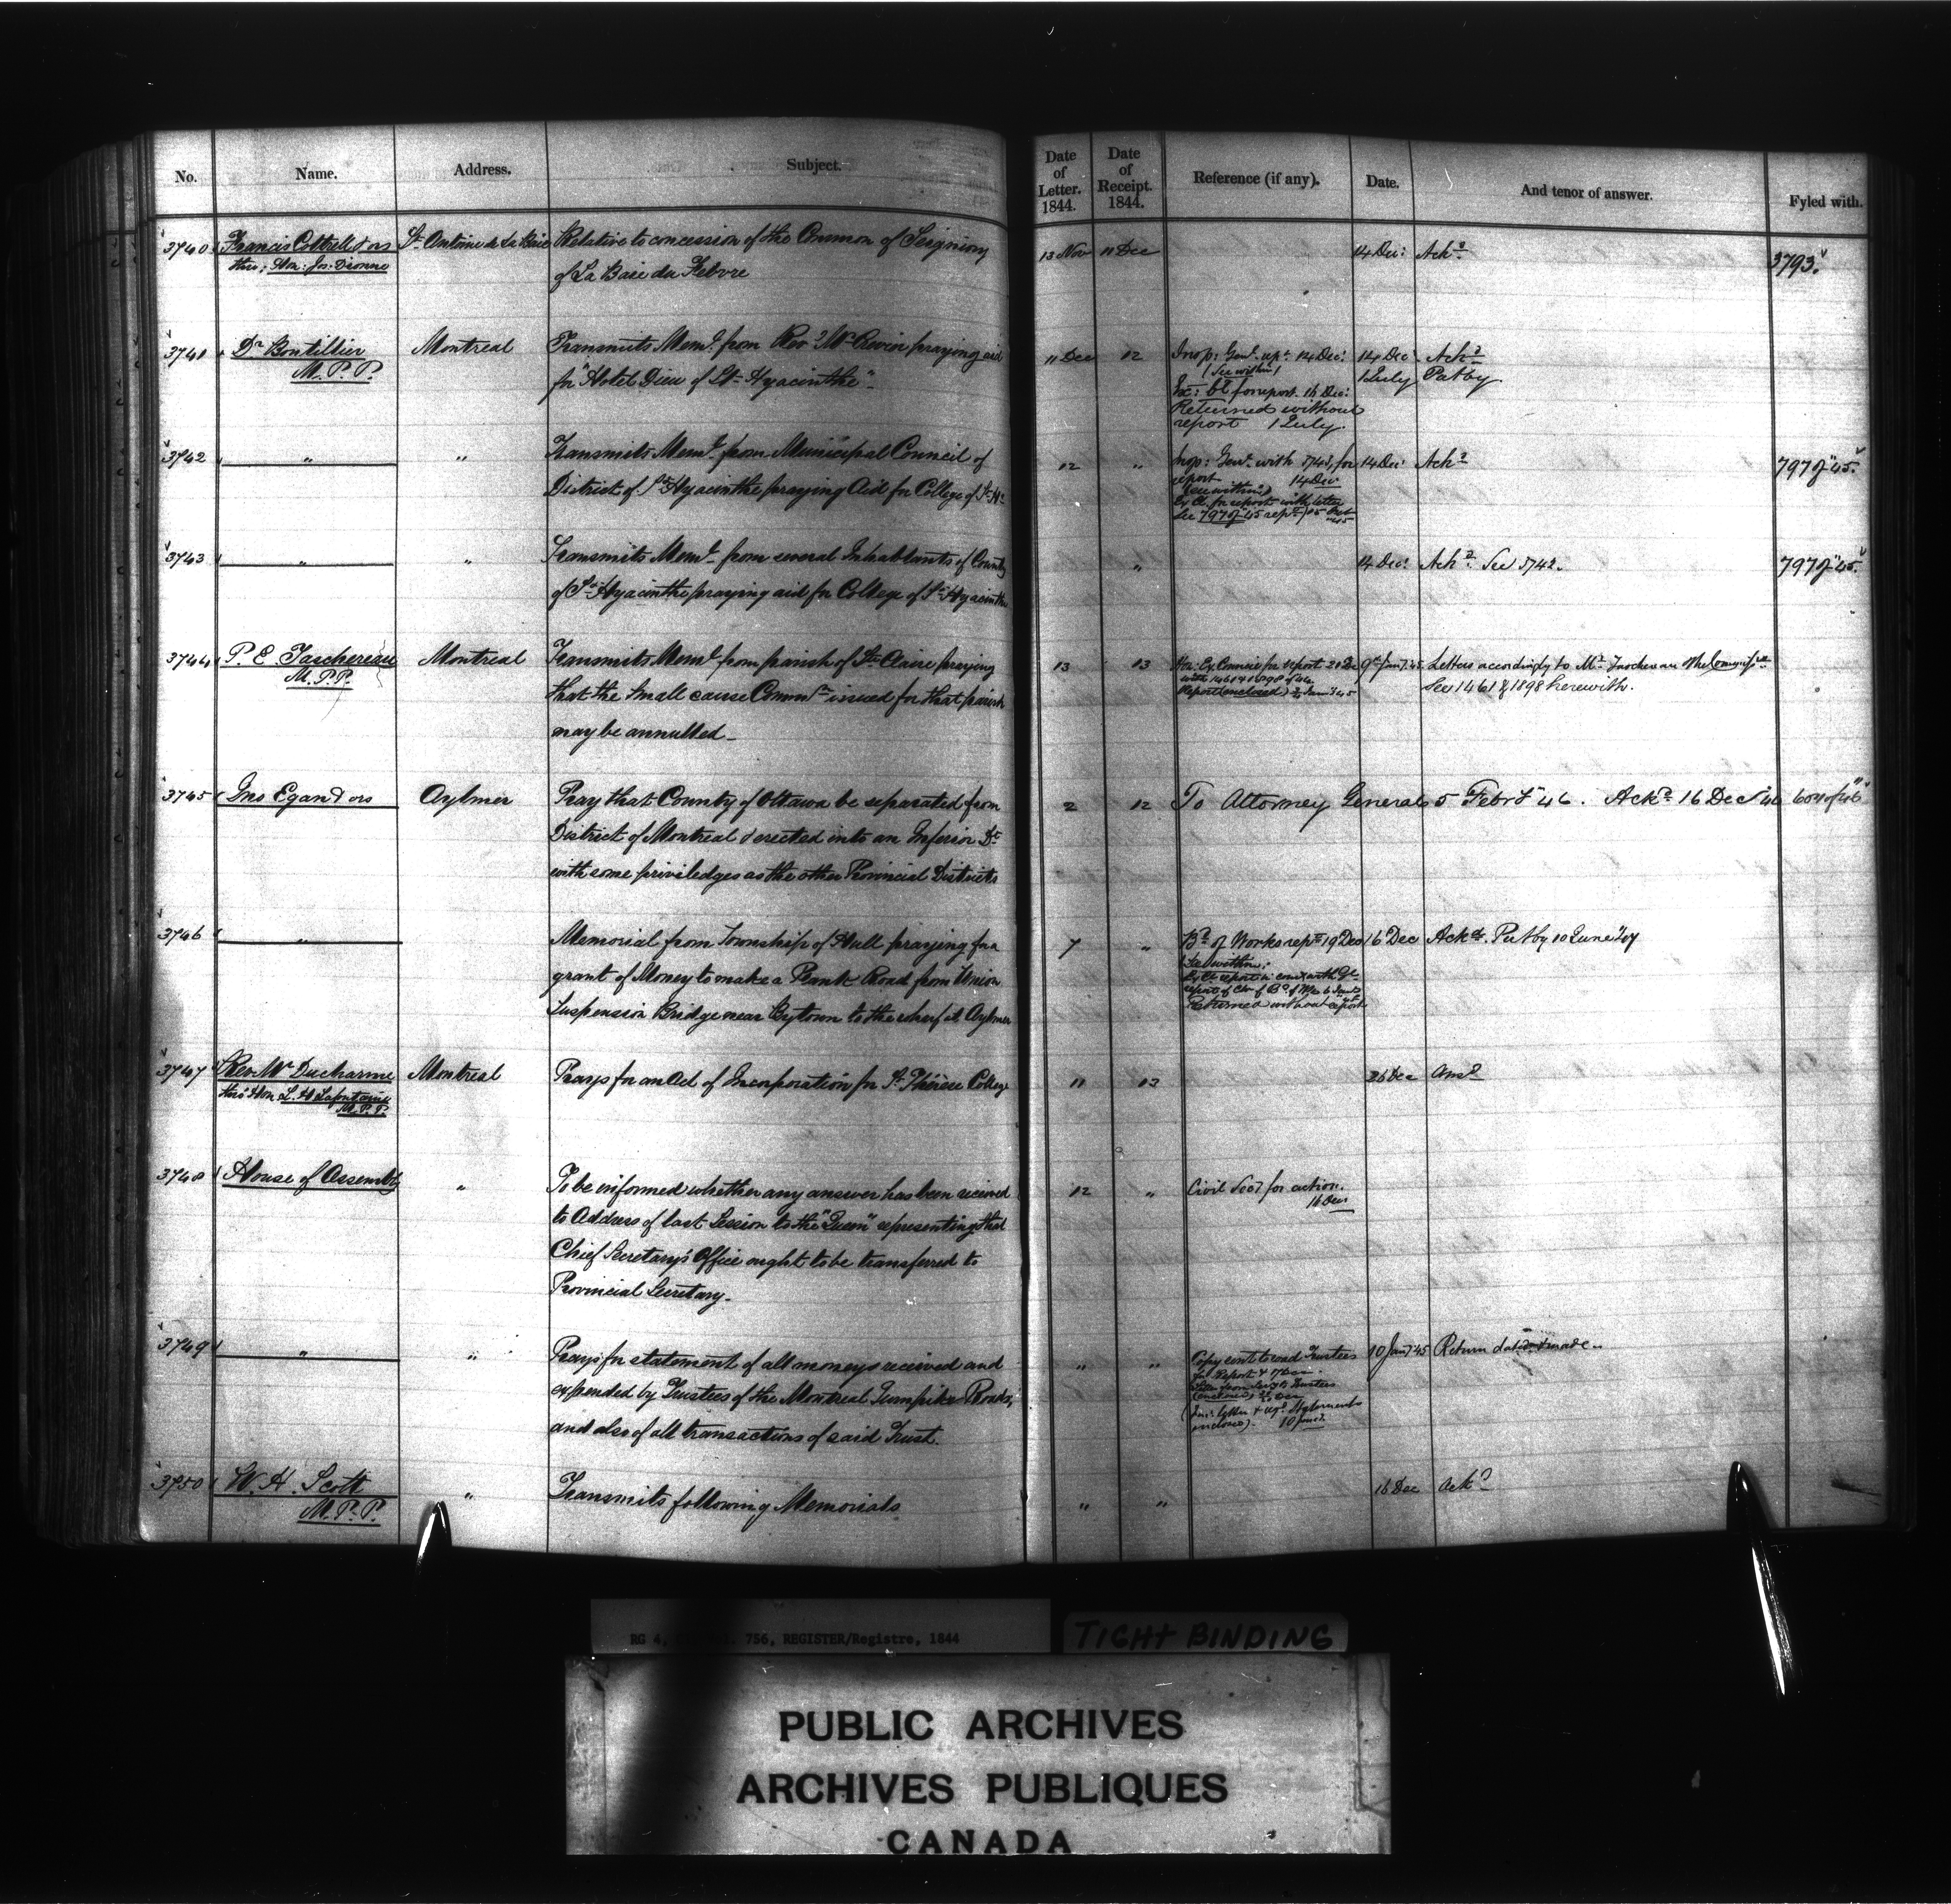 No. Name. Address. Subject. Date of Letter. 1844. Date of Receipt. 1844. Reference (if any). Date. And tenor of answer. Fyled with.
3740 Francis Cottrell & ors St Antoine de La Baie Relative to concession of the Common of Seigniory 13 Nov 11 Dec 14 Dec: Ackd 3793.
thro: Hon: Jos. Dionne of La Baie du Febvre
3741 Dr Boutillier Montreal Transmits Meml. from Revd Mr praying aid 11 Dec 12 Insp: Genl. 14 Dec: 14 Dec Ackd
M.P.P. for "Hotel Dieu of St Hyacinthe" (See within) 1 July Put by
for report. 16 Dec:
Returned without
report 1 July.
3742 " " Transmits Meml. from Municipal Council of 12 " Insp: Genl. with 3743, for 14 Dec: Ackd 797 of "45".
District of St Hyacinthe praying Aid for College of St H. report 14 Dec
(see within)
Ex Cl. for report with letter
See 797 of 45
3743 " " Transmits Meml. from several Inhabitants of County " 14 Dec: Ackd. See 3742. 797 of "45".
of St Hyacinthe praying aid for College of St Hyacinthe
3744 P. E. Taschereau Montreal Transmits Meml. from parish of St Claire praying 13 13 Ex. Council for report 20 Dec 9th Jany "45 Letters accordingly to Mr. Taschereau &
M.P.P. that the Small cause Commn issued for that parish with 1461 & 1898 of 44. See 1461 & 1898 herewith.
may be annulled _ Report (enclosed)
3745 Jno Egan & ors Aylmer Pray that County of Ottawa be separated from 2 12 To Attorney General 5 Febry "46. Ackd 16 Dec
District of Montreal & erected into an Inferior Dt
with same priviledges as the other Provincial Districts
3746 " Memorial from Township of Hull praying for a 7 " Bd of Works rept 19 Dec 16 Dec Ackd. Put by 10 June
grant of Money to make a Plank Road from Union (See within)
Suspension Bridge near Bytown to the wharf at Aylmer
Returned without report
3747 Rev Mr Ducharme Montreal Prays for an Act of Incorporation for St Thérèse College 11 13 26 Dec Ansd
thro' Hon L. H Lafontaine
M.P.P.
3748 House of Assembly " To be informed whether any answer has been received 12 " Civil Secy for action.
to Address of last Session to the "Queen" representing that 16 Dec
Chief Secretary's Office ought to be transferred to
Provincial Secretary.
3749 " " Prays for statement of all moneys received and " " Copy sent to road Trustees 10 Jany "45 Return
expended by Trustees of the Montreal Turnpike Roads, for Report 17 Dec
and also of all transactions of said Trust.
3750 W. H. Scott " Transmits following Memorials " " 16 Dec Ackd
M.P.P.
RG 4, 756, REGISTER/Registre, 1844
TIGHT BINDING
PUBLIC ARCHIVES
ARCHIVES PUBLIQUES
CANADA